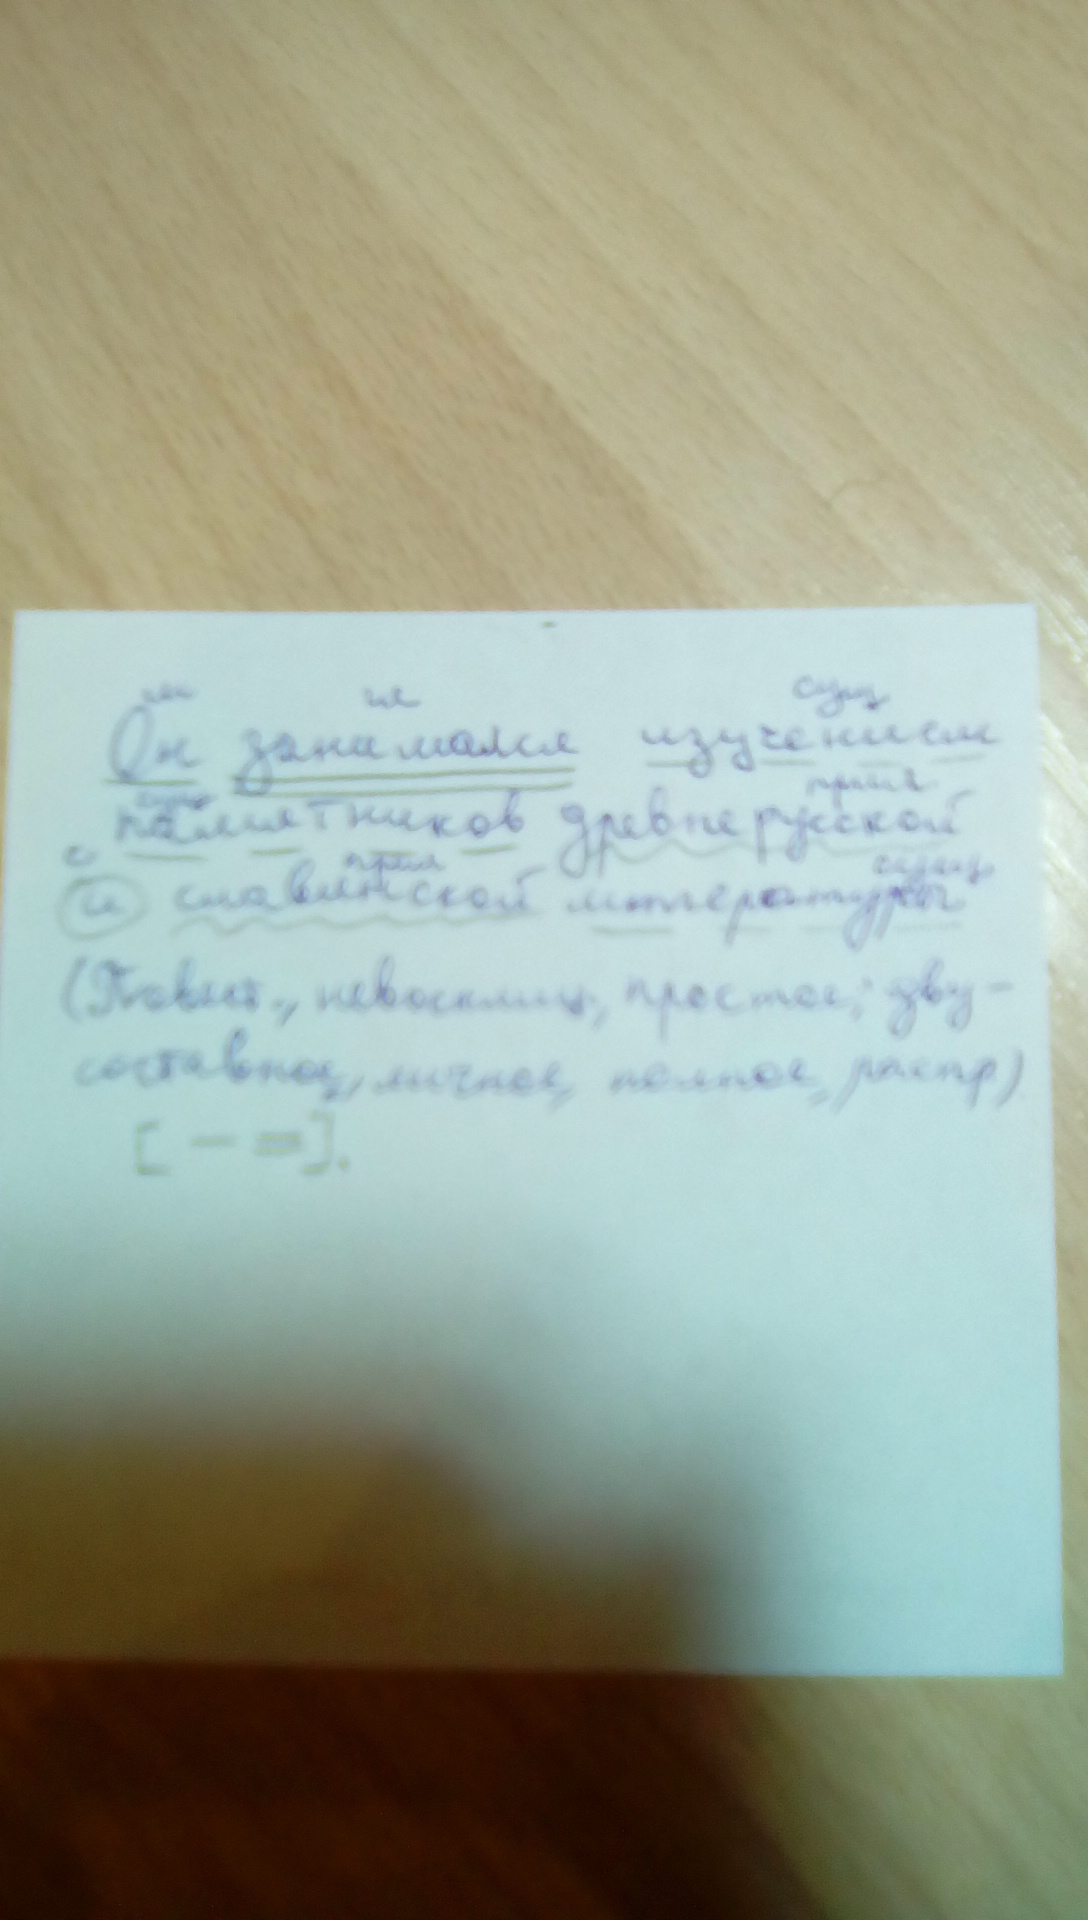 мес гл сущ
Он занимался изучением
сущ прил
памятников древнерусской
с прил сущ
и славянской литературы
(Повест., невосклиц., простое, дву-
составное, личное, полное, распр)
[ — = ].